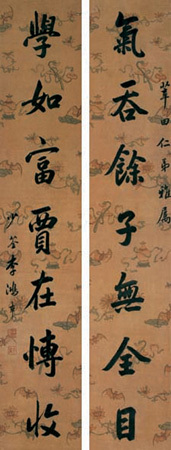 田仁弟雅屬
氣吞餘子無全目
學如富賈在愽收
少荃李鴻章